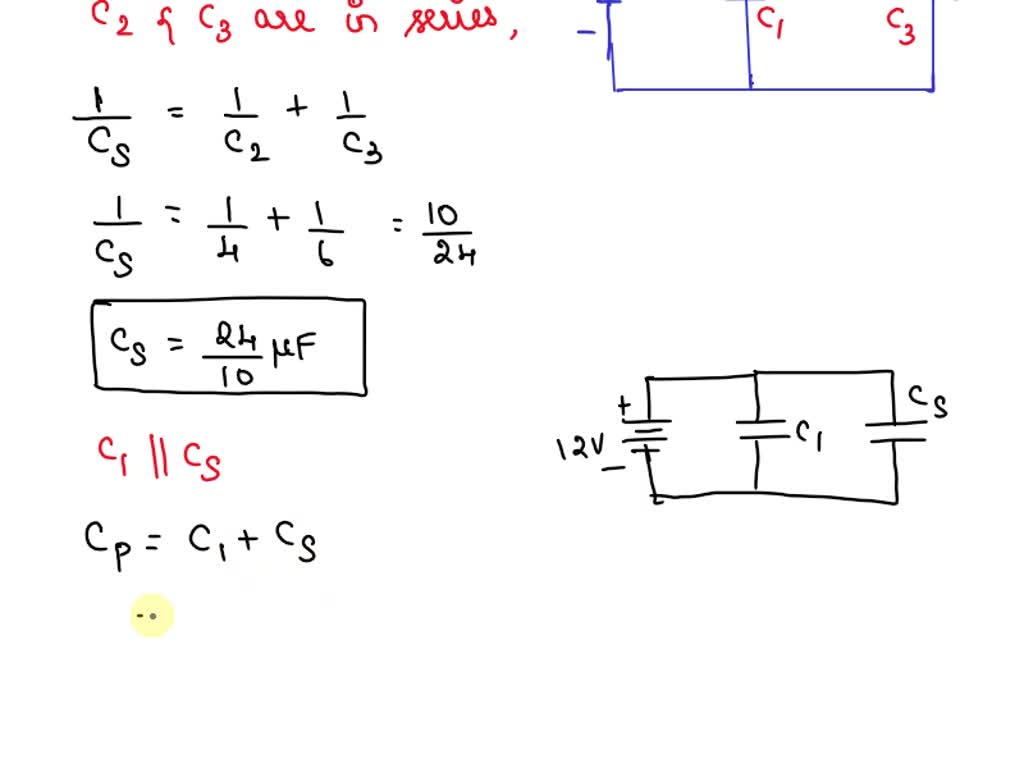 C2 & C3 are in series,
− C1 C3
1/CS = 1/C2 + 1/C3
1/CS = 1/4 + 1/6 = 10/24
CS = 24/10 μF
C1 || CS
CP = C1 + CS
+ 12V − C1 CS